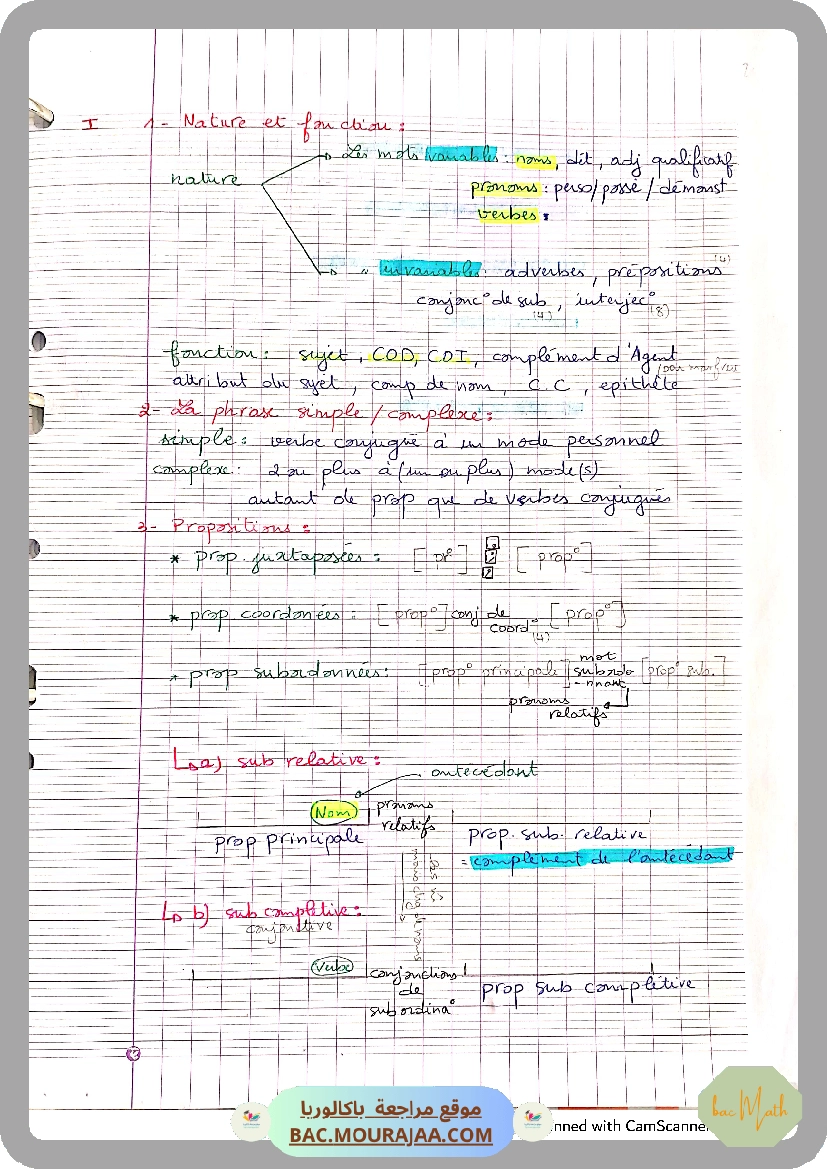 I 1- Nature et fonction :
nature
Les mots variables : noms, dét, adj qualificatif
pronoms : perso/posse / démonst
verbes :
" invariables : adverbes, prépositions (4)
conjonc° de sub (4), interjec° (8)
fonction : sujet, COD, COI, complément d'Agent
attribut du sujet, comp de nom, C.C, epithète
2- La phrase simple / complexe :
simple : verbe conjugué à un mode personnel
complexe : 2 ou plus à (un ou plus) mode(s)
autant de prop que de verbes conjugués
3- Propositions :
* prop. juxtaposées : [ pr° ] , ; : [ prop° ]
* prop coordonées : [prop°] conj de coord° (4) [prop°]
* prop subordonnées : [prop° principale] mot subordo-nnant [prop° sub.]
pronoms
relatifs
a) sub relative :
antecédant
Nom pronoms
relatifs
prop principale
prop. sub. relative
= complément de l'antécédant
b) sub complétive :
conjonctive
Verbe conjonctions
de
subordina°
prop sub complétive
موقع مراجعة باكالوريا
BAC.MOURAJAA.COM
nned with CamScanner
bac Math